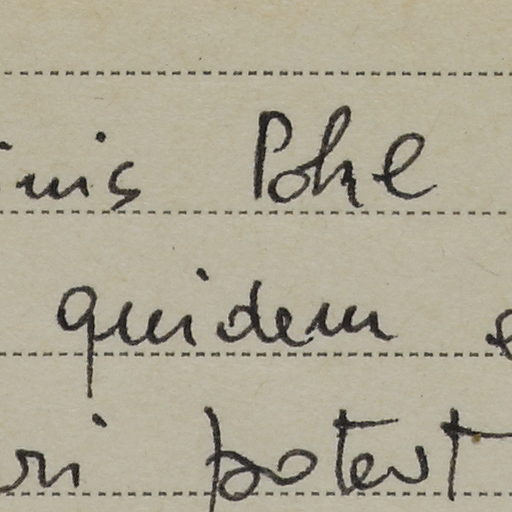 inis Pohl
quidem e
ri potest